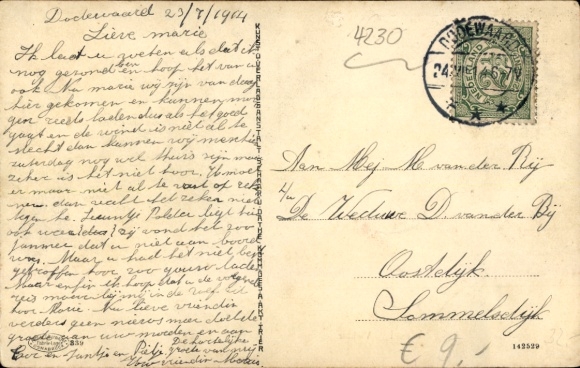 Dodewaard 23/7/1914
Lieve marie
Ik laat u weten als dat ik
nog gezond ben en hoop het van u
ook Nu marie wij zijn van daag
hier gekomen en kunnen mor
gen reeds ladendus als het goed
gaat en de wind is niet al te
slecht dan kunnen wij misschien
zaturdag nog wel thuis zijn maar
zeker is het niet hoor. U moet
er maar niet al te vast op reke
nen dan valt het zeker niet
tegen he. Leuntje Polder ligt hier
ook
zij vond het zoo
Jammer dat u niet aan boord
was. Maar u had het niet
getroffen hoor zoo gauw laden
Maar enfin ik hoop dat u de volgende
reis maar bij mij in de
hoor Marie. Nu lieve vriendin
verders geen nieuws meer
groete van uw moeder en aan
en Jantje en Pietje De hartelijke
groete van mij
Uw vriendin
KUNSTVERLAGSANSTALT
TRIER
839
4230
DODEWAARD
24
NEDERLAND
Aan Mej M van der Rij
p/a
De Weduw D. van der Rij
Oostdijk
Sommelsdijk
€ 9,-
142529